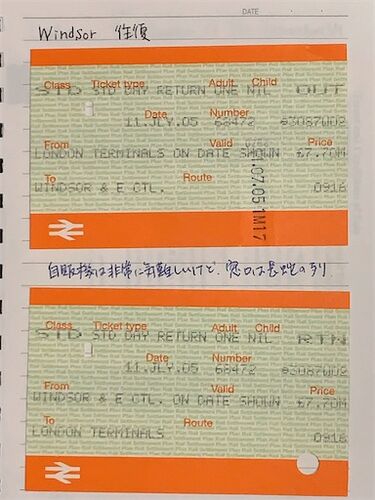 DATE
Windsor 往復
Class Ticket type Adult Child
STD STD DAY RETURN ONE NIL OUT
Date Number
11.JLY.05 68472
From Valid Price
LONDON TERMINALS ON DATE SHOWN £7.70M
To Route
WINDSOR & E CTL. 0916
自販機は非常に気難しいけど、窓口は長蛇の列
Class Ticket type Adult Child
STD STD DAY RETURN ONE NIL RTN
Date Number
11.JLY.05 68472
From Valid Price
WINDSOR & E CTL. ON DATE SHOWN £7.70M
To Route
LONDON TERMINALS 0916